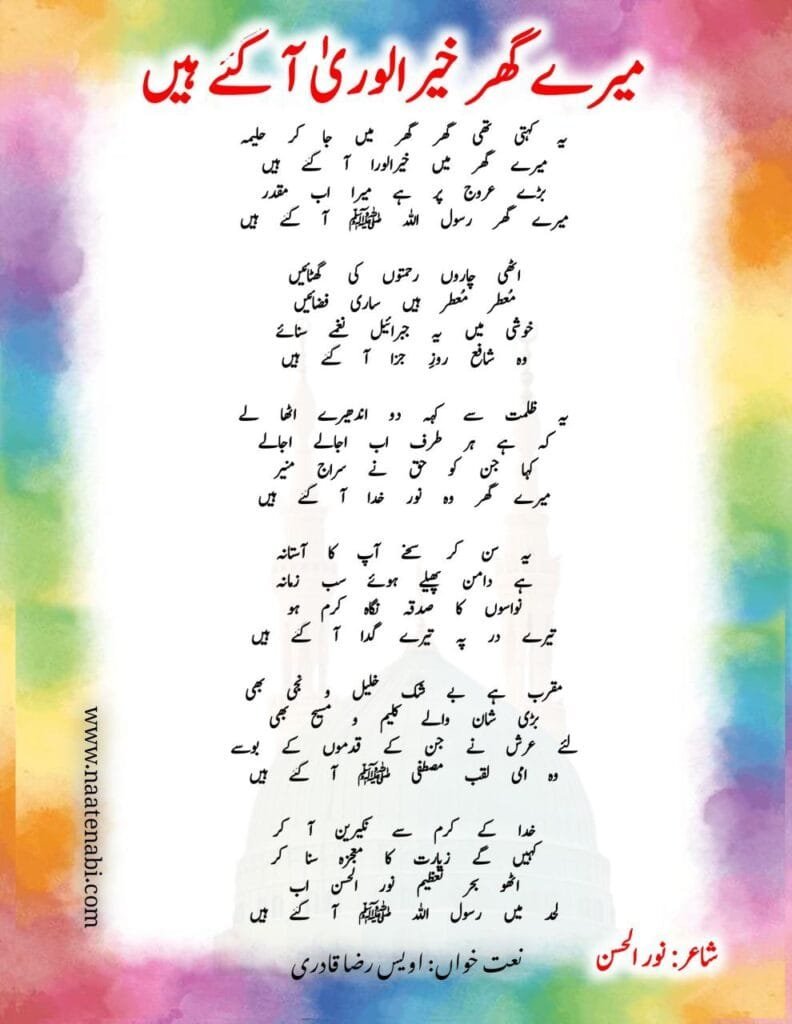 میرے گھر خیرالوریٰ آ گئے ہیں
یہ کہتی تھی گھر گھر میں جا کر حلیمہ
میرے گھر میں خیرالورا آ گئے ہیں
بڑے عروج پر ہے میرا اب مقدر
میرے گھر رسول اللہ ﷺ آ گئے ہیں
اٹھی چاروں رحمتوں کی گھٹائیں
مُعطر مُعطر ہیں ساری فضائیں
خوشی میں یہ جبرائیل نغمے سنائے
وہ شافع روزِ جزا آ گئے ہیں
یہ ظلمت سے کہہ دو اندھیرے اٹھا لے
کہ ہے ہر طرف اب اجالے اجالے
کہا جن کو حق نے سراج منیر
میرے گھر وہ نور خدا آ گئے ہیں
یہ سن کر سخے آپ کا آستانہ
ہے دامن پھیلے ہوئے سب زمانہ
نواسوں کا صدقہ نگاہ کرم ہو
تیرے در پہ تیرے گدا آ گئے ہیں
مقرب ہے بے شک خلیل و نجی بھی
بڑی شان والے کلیم و مسیح بھی
لئے عرش نے جن کے قدموں کے بوسے
وہ امی لقب مصطفی ﷺ آ گئے ہیں
خدا کے کرم سے نکیرین آ کر
کہیں گے زیارت کا معجزہ سنا کر
اٹھو بحر تعظیم نور الحسن اب
لحد میں رسول اللہ ﷺ آ گئے ہیں
شاعر: نور الحسن
نعت خواں: اویس رضا قادری
www.naatenabi.com